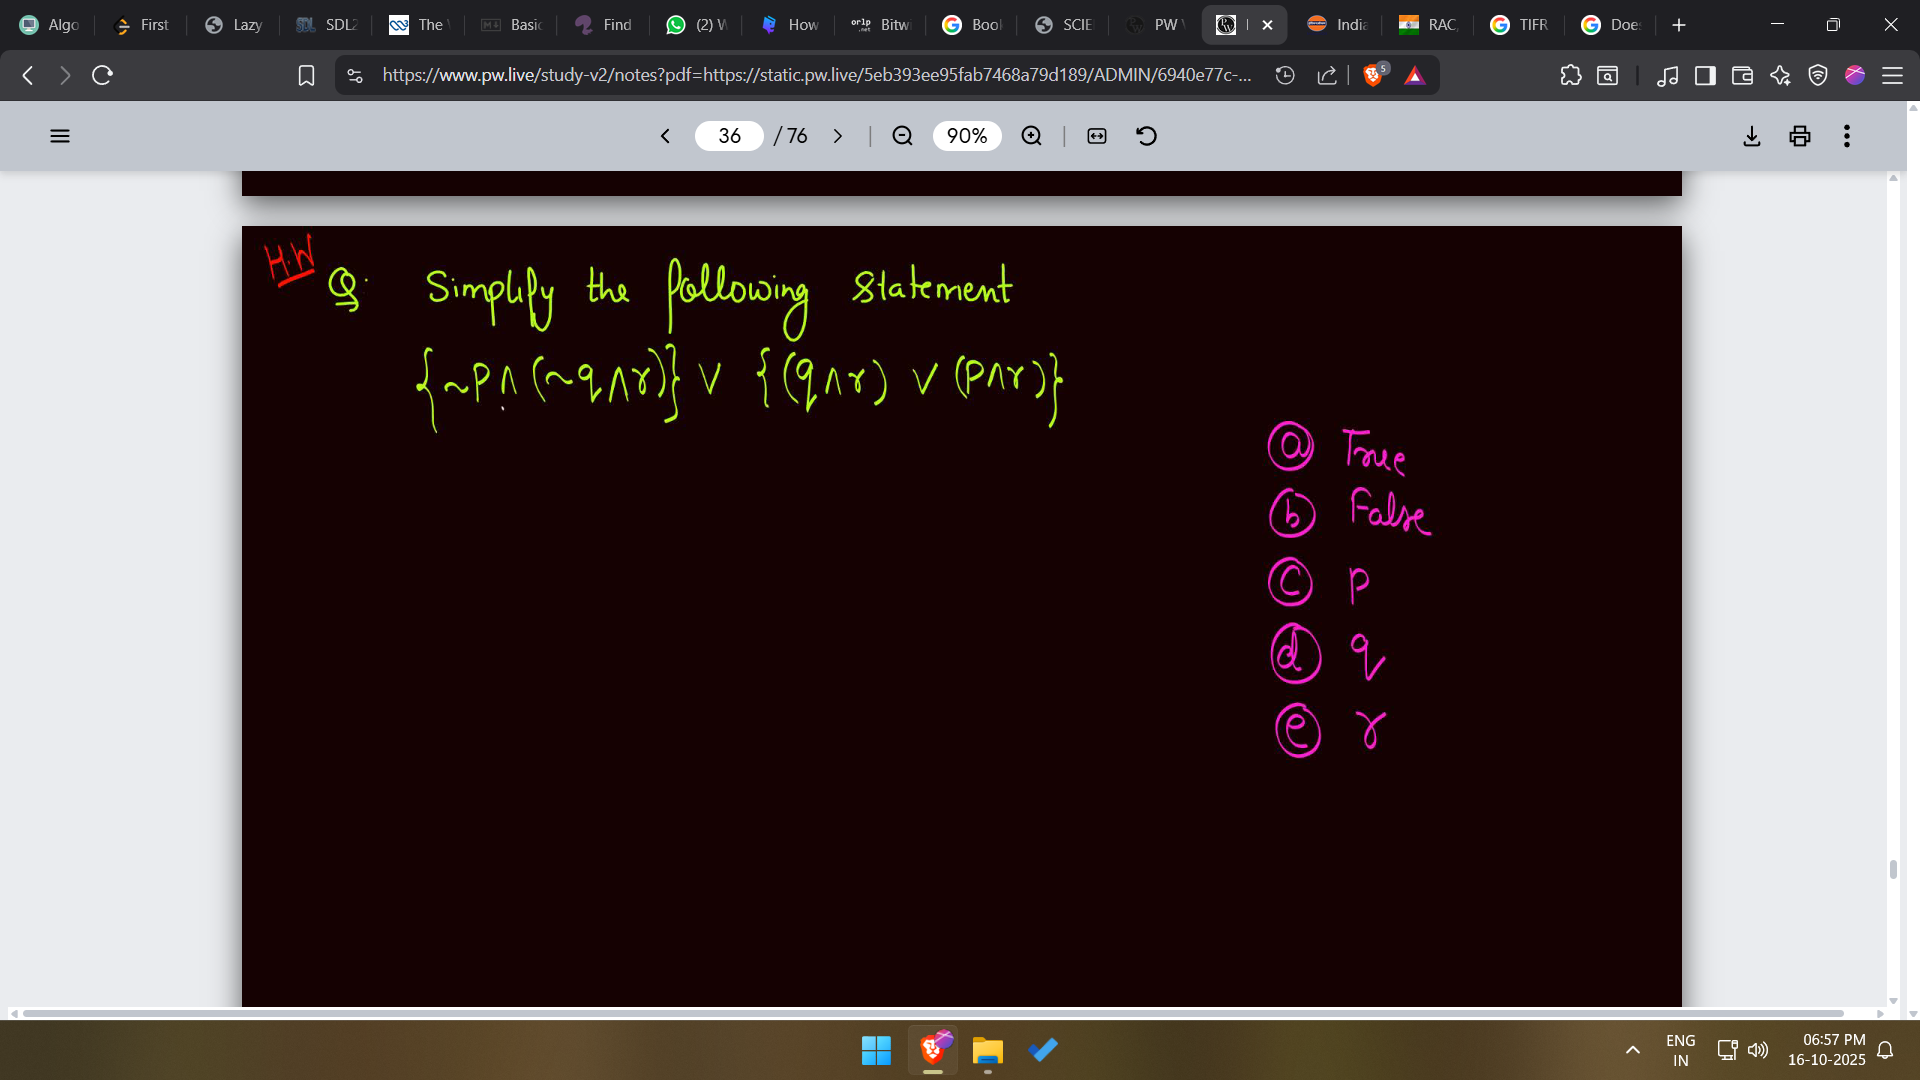 Algo First Lazy SDL2 The Basic Find (2) W How orlp .net Bitwi Book SCIE PW India RAC, TIFR Does
https://www.pw.live/study-v2/notes?pdf=https://static.pw.live/5eb393ee95fab7468a79d189/ADMIN/6940e77c-... 5
36 / 76 90%
H.W
Q. Simplify the following statement
{~P∧(~q∧r)} ∨ {(q∧r) ∨ (P∧r)}
(a) True
(b) False
(c) P
(d) q
(e) r
ENG 06:57 PM
IN 16-10-2025